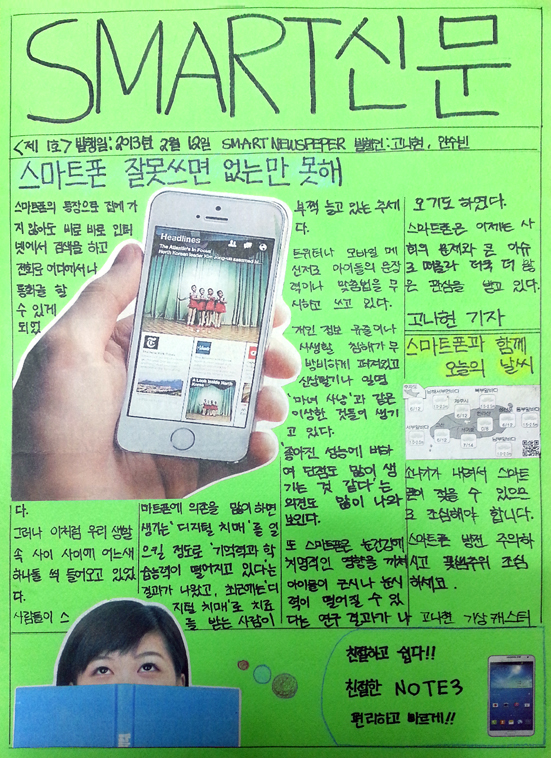 SMART신문
<제 1호> 발행일: 2013년 2월 12일 SMART NEWSPEPER 발행인: 고나현, 안수빈
스마트폰 잘못쓰면 없는만 못해
스마트폰의 등장으로 집에 가
지 않아도 바로 바로 인터
넷에서 검색을 하고
전화로 어디에서나
통화를 할
수 있게
되었
다.
그러나 이처럼 우리 생활
속 사이 사이에 어느새
하나둘 씩 들어오고 있었
다.
사람들이 스
마트폰에 의존을 많이 하면
생기는 '디지털 치매'를 일
으킬 정도로 '기억력과 학
습능력이 떨어지고 있다'는
결과가 나왔고, 최근에는 '디
지털 치매'로 치료
를 받는 사람이
부쩍 늘고 있는 추세
다.
트위터나 모바일 메
신저로 아이들의 문장
력이나 맞춤법을 무
시하고 쓰고 있다.
개인 정보 유출이나
사생활 침해가 무
방비하게 퍼져있고
신상털기나 일명
'마녀 사냥'과 같은
이상한 것들이 생기
고 있다.
좋아진 성능에 비하
여 단점도 많이 생
기는 것 같다'는
의견도 많이 나와
보인다.
또 스마트폰은 눈건강에
치명적인 영향을 끼쳐
아이들이 근시나 난시
력이 떨어질 수 있
다는 연구 결과가 나
오기도 하였다.
스마트폰은 이제는 사
회의 문제와 큰 이슈
로 떠올라 더욱 더 많
은 관심을 받고 있다.
고나현 기자
스마트폰과 함께
오늘의 날씨
소나기가 내려서 스마트
폰이 젖을 수 있으므
로 조심해야 합니다.
스마트폰 방전 주의하
시고 조심
하세요.
고나현 기상 캐스터
Headlines
The Atlantic's In Focus
North Korean leader Kim
A Look Inside North
Korea
제주시
서귀포
친절하고 쉽다!!
친절한 NOTE3
편리하고 빠르게!!